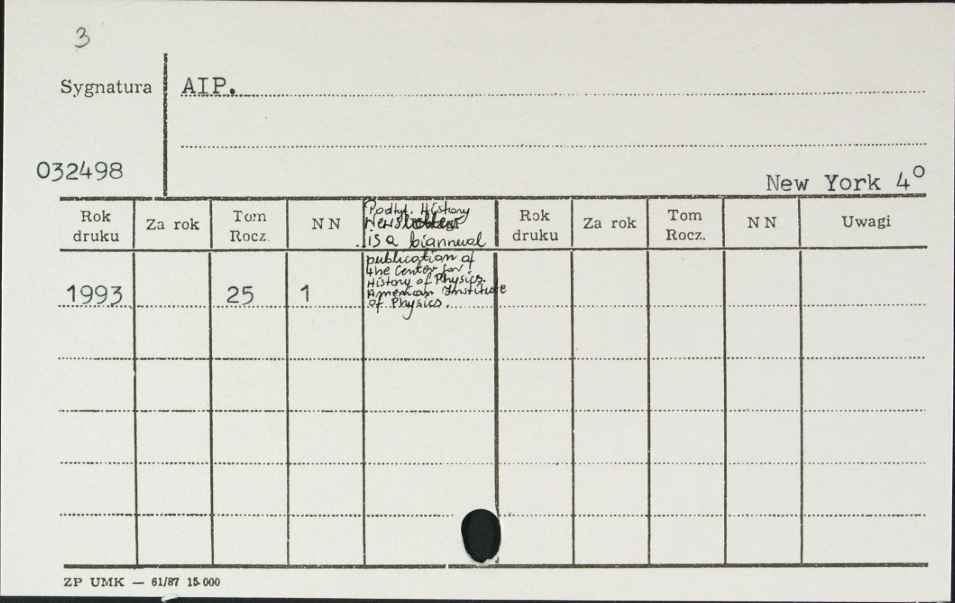 3
Sygnatura AIP.
032498
New York 4°
Rok druku Za rok Tom Rocz. N N Podtyt. History Newsletter is a biannual publication of the Center for History of Physics. American Institute of Physics. Rok druku Za rok Tom Rocz. N N Uwagi
1993 25 1
ZP UMK — 61/87 15.000